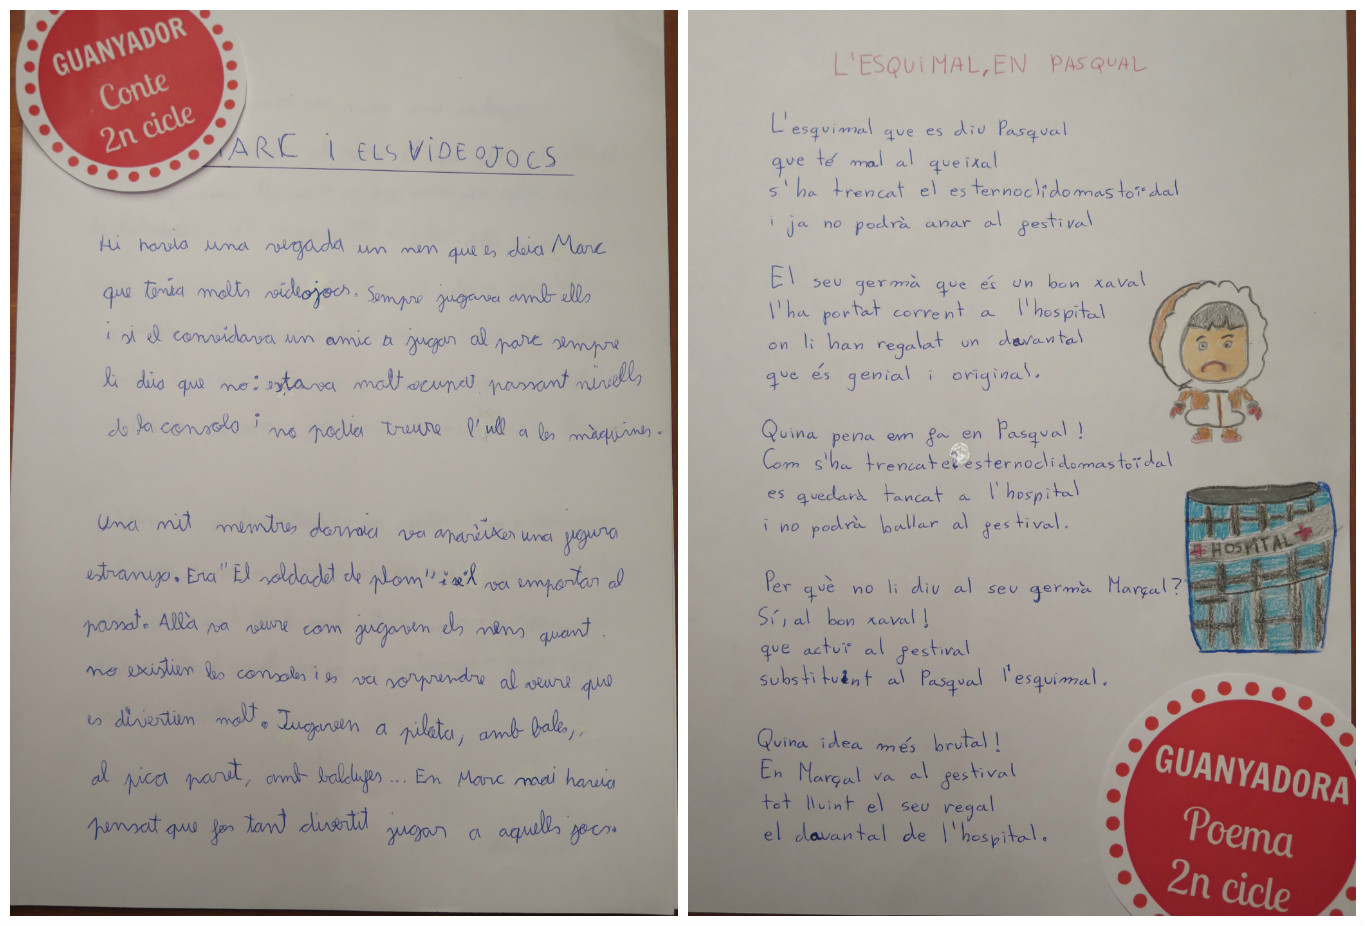 GUANYADOR
Conte
2n cicle
MARC i ELS VIDEOJOCS
Hi havia una vegada un nen que es deia Marc
que tenia molts videojocs. Sempre jugava amb ells
i si el convidava un amic a jugar al parc sempre
li deia que no: estava molt ocupat passant nivells
de la consola i no podia treure l'ull a les màquines.
Una nit mentres dormia va aparèixer una figura
estranya. Era "El soldadet de plom" i se'l va emportar al
passat. Allà va veure com jugaven els nens quant
no existien les consoles i es va sorprendre al veure que
es divertien molt. Jugaven a pilota, amb bales,
al pica paret, amb baldufes... En Marc mai havia
pensat que fos tant divertit jugar a aquells jocs.
L'ESQUIMAL, EN PASQUAL
L'esquimal que es diu Pasqual
que té mal al queixal
s'ha trencat el esternoclidomastoïdal
i ja no podrà anar al festival
El seu germà que és un bon xaval
l'ha portat corrent a l'hospital
on li han regalat un davantal
que és genial i original.
Quina pena em fa en Pasqual!
Com s'ha trencat el esternoclidomastoïdal
es quedarà tancat a l'hospital
i no podrà ballar al festival.
Per què no li diu al seu germà Marçal?
Sí, al bon xaval!
que actuï al festival
substituint al Pasqual l'esquimal.
Quina idea més brutal!
En Marçal va al festival
tot lluint el seu regal
el davantal de l'hospital.
HOSPITAL
GUANYADORA
Poema
2n cicle